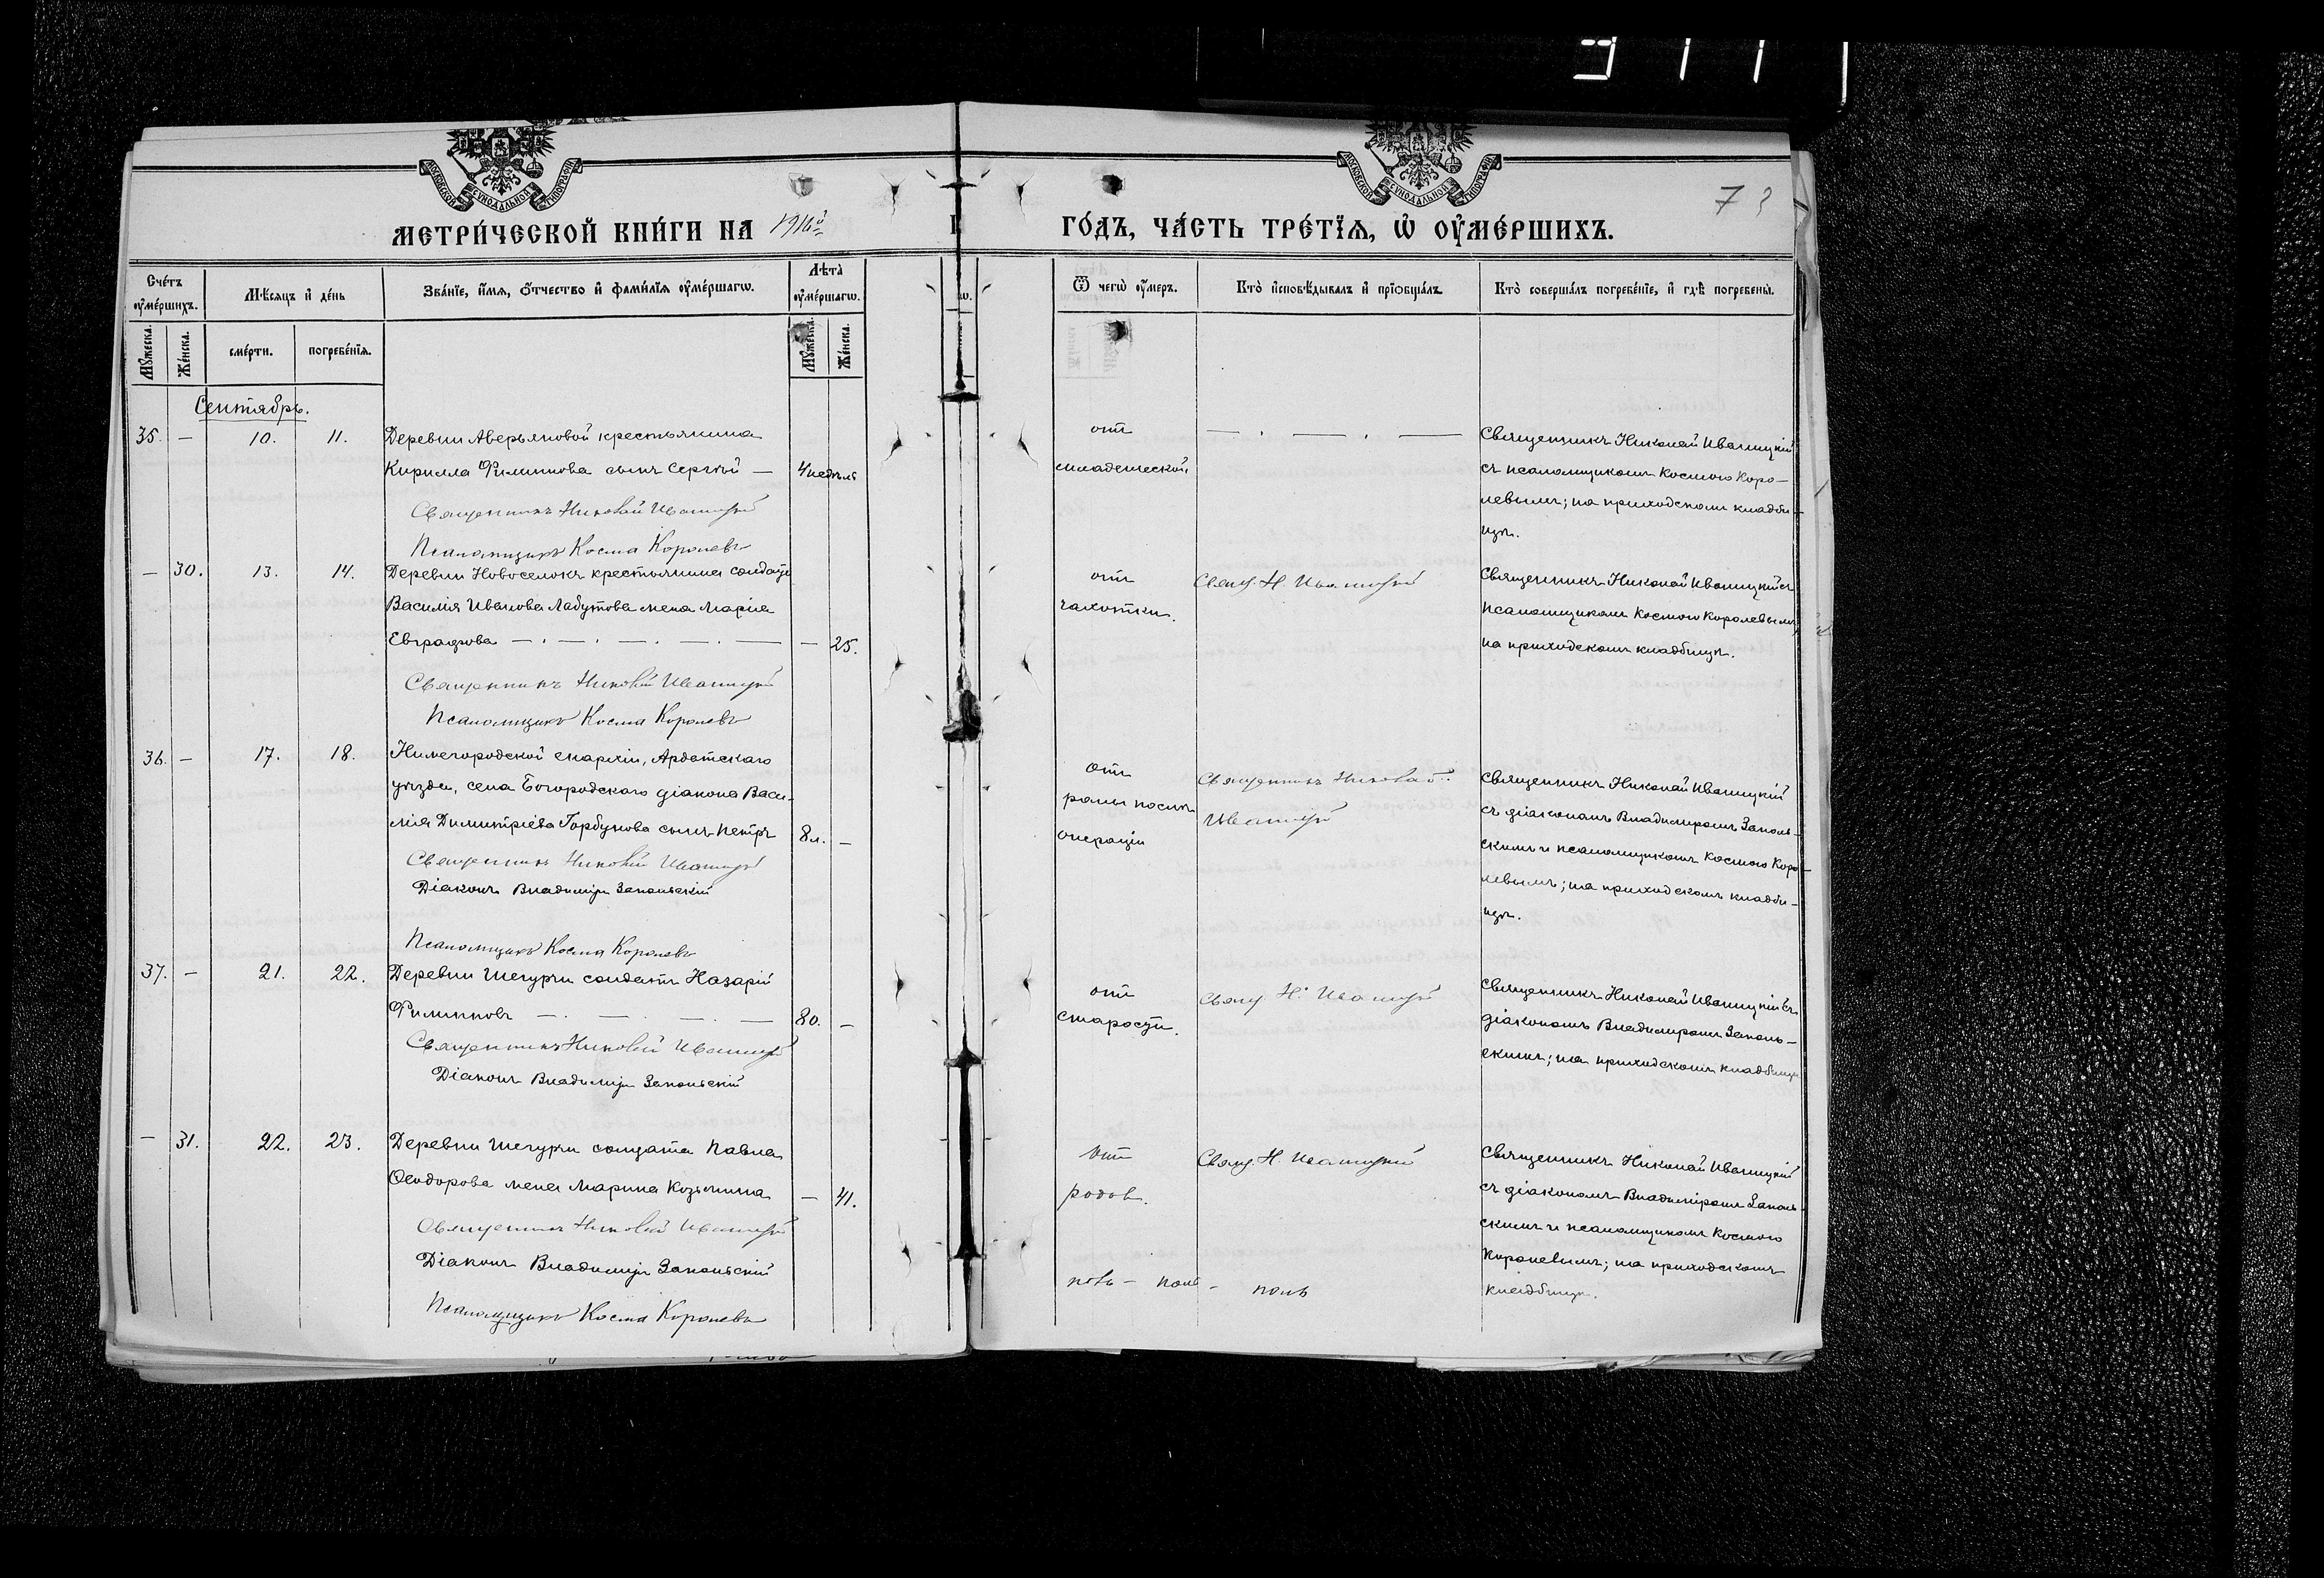 911
МОСКОВСКОЙ СѴНОДАЛЬНОЙ ТИПОГРАФІИ
МОСКОВСКОЙ СѴНОДАЛЬНОЙ ТИПОГРАФІИ
73
МЕТРИ́ЧЕСКОЙ КНИ́ГИ НА 1916й
ГО́ДЪ, ЧА́СТЬ ТРЕ́ТЇѦ, Ѡ҆ ОУ҆МЕ́РШИХЪ.
Сче́тъ оу҆ме́ршихъ.
Мѣ́сяцъ и҆ де́нь
Зва́нїе, и҆́мя, ѻ҆́тчество и҆ фами́лїя оу҆ме́ршагѡ.
Лѣта̀ оу҆ме́ршагѡ.
Ѿ чегѡ̀ оу҆́меръ.
Кто̀ и҆сповѣ́дывалъ и҆ прїѡбща́лъ.
Кто̀ соверша́лъ погребе́нїе, и҆ гдѣ̀ погребены̀.
Мꙋ́жеска.
Же́нска.
сме́рти.
погребе́нїя.
Мꙋ́жеска.
Же́нска.
Сентябрь.
35. — 10. 11. Деревни Аверьяновой крестьянина
Кирилла Филиппова сынъ Сергѣй — 4 недѣль
Священникъ Николай Иваницкій
Псаломщикъ Косма Королевъ
отъ
младенческой
— . — . —
Священникъ Николай Иваницкій
съ псаломщикомъ Космою Коро-
левымъ; на приходскомъ кладби-
щѣ.
— 30. 13. 14. Деревни Новоселокъ крестьянина солдата
Василія Иванова Лабутова жена Марія
Евграфова — . — . — . — . — — 25.
Священникъ Николай Иваницкій
Псаломщикъ Косма Королевъ
отъ
чахотки.
Свящ. Н. Иваницкій
Священникъ Николай Иваницкій съ
псаломщикомъ Космою Королевымъ;
на приходскомъ кладбищѣ.
36. — 17. 18. Нижегородской епархіи, Ардатскаго
уѣзда, села Богородскаго діакона Васи-
лія Димитріева Горбунова сынъ Петръ 8 л. —
Священникъ Николай Иваницкій
Діаконъ Владиміръ Запольскій
Псаломщикъ Косма Королевъ
отъ
раны послѣ
операціи
Священникъ Николай
Иваницкій
Священникъ Николай Иваницкій
съ діакономъ Владиміромъ Заполь-
скимъ и псаломщикомъ Космою Коро-
левымъ; на приходскомъ кладби-
щѣ.
37. — 21. 22. Деревни Шегурчи солдатъ Назарій
Филипповъ — . — . — . — 80. —
Священникъ Николай Иваницкій
Діаконъ Владиміръ Запольскій
отъ
старости.
Свящ. Н. Иваницкій
Священникъ Николай Иваницкій съ
діакономъ Владиміромъ Заполь-
скимъ; на приходскомъ кладбищѣ
— 31. 22. 23. Деревни Шегурчи солдата Павла
Ѳеодорова жена Марина Козьмина — 41.
Священникъ Николай Иваницкій
Діаконъ Владиміръ Запольскій
Псаломщикъ Косма Королевъ
отъ
родов.
Свящ. Н. Иваницкій
Священникъ Николай Иваницкій
съ діакономъ Владиміромъ Заполь-
скимъ и псаломщикомъ Космою
Королевымъ; на приходскомъ
кладбищѣ.